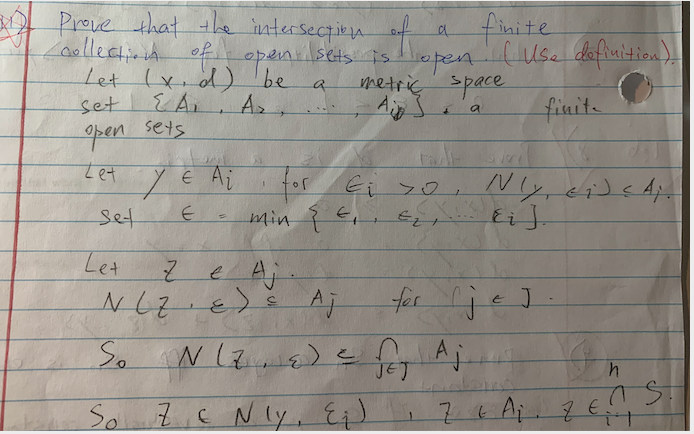 Prove that the intersection of a finite
collection of open sets is open. (Use definition).
Let (x, d) be a metric space
set {A₁, A₂, ...., }, a finite
open sets
Let y ∈ Aᵢ, for εᵢ > 0, N(y, εᵢ) ⊆ Aᵢ.
set ε = min {ε₁, ε₂, ... εᵢ}.
Let z ∈ Aⱼ.
N(z, ε) ⊆ Aⱼ for j ∈ J.
So N(z, ε) ⊆ ⋂_{j∈J} Aⱼ
So z ∈ N(y, εᵢ), z ∈ Aᵢ. z ∈ ⋂_{i=1}^{n} S.